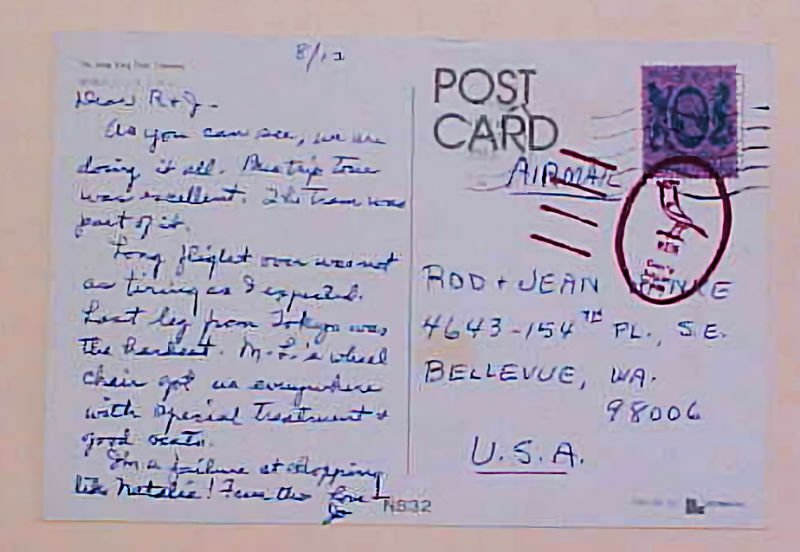 8/12
Dear R + J -
As you can see, we are
doing it all. Bus trip Tour
was excellent. The Tram was
part of it.
Long flight over was not
as tiring as I expected.
Last leg from Tokyo was
the hardest. M.L.'s wheel
chair got us everywhere
with special treatment +
good seats.
I'm a failure at shopping
like Natalie! Love
Jo
N832
POST
CARD
AIRMAIL
ROD + JEAN
4643-154TH PL., S.E.
BELLEVUE, WA.
98006
U.S.A.